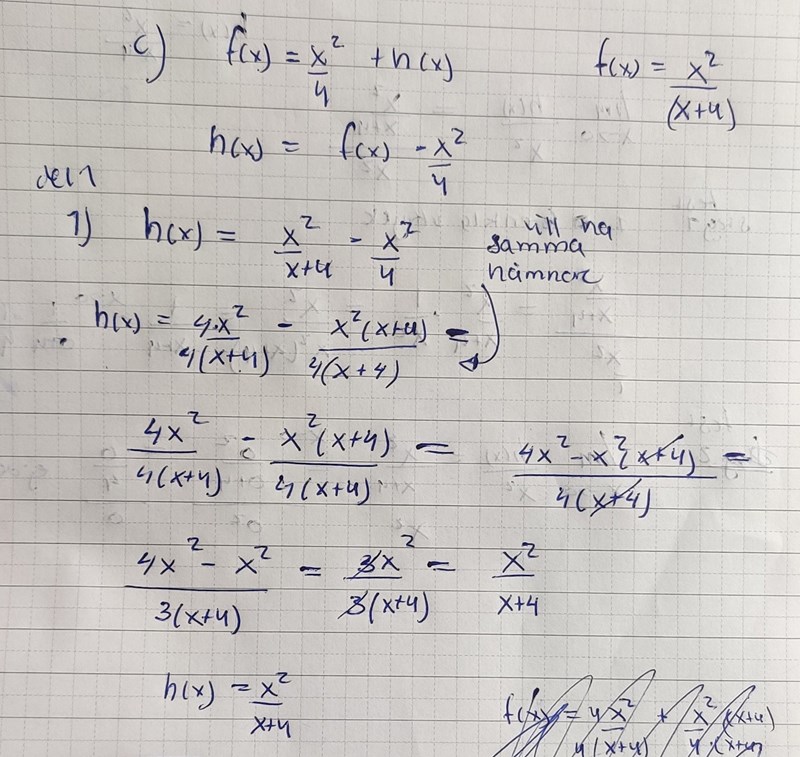 c) f(x) = x²/4 + h(x)    f(x) = x²/(x+4)
h(x) = f(x) - x²/4
del 1
1) h(x) = x²/(x+4) - x²/4    vill ha
samma
nämnare
h(x) = 4·x²/4(x+4) - x²(x+4)/4(x+4) =
4x²/4(x+4) - x²(x+4)/4(x+4) = 4x² - x²(x+4)/4(x+4) =
4x² - x²/3(x+4) = 3x²/3(x+4) = x²/x+4
h(x) = x²/x+4
f(x) = 4x²/4(x+4) + x²(x+4)/4·(x+4)